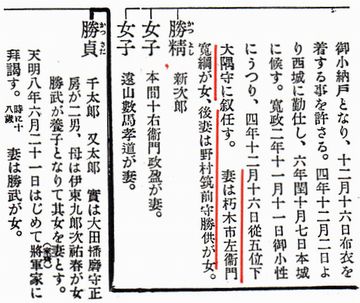 御小納戸となり、十二月十六日布衣を
着する事を許さる。四年十二月二日よ
り西城に勤仕し、六年閏十月七日本城
に候す。寛政二年十一月十一日御小性
にうつり、四年十二月十六日從五位下
大隅守に叙任す。 妻は朽木市左衞門
寛綱が女、後妻は野村筑前守勝供が女。
勝精 かつよし 新次郎
女子 本間十右衞門政盈が妻。
女子 遠山數馬孝道が妻。
勝貞 かつさだ 千太郎 又太郎 實は大田播磨守正
房が二男、母は伊東九郎次祐春が女
勝武が養子となりて其女を妻とす。
天明八年六月二十一日はじめて將軍家に(家齊)
拜謁す。時に十八歳 妻は勝武が女。